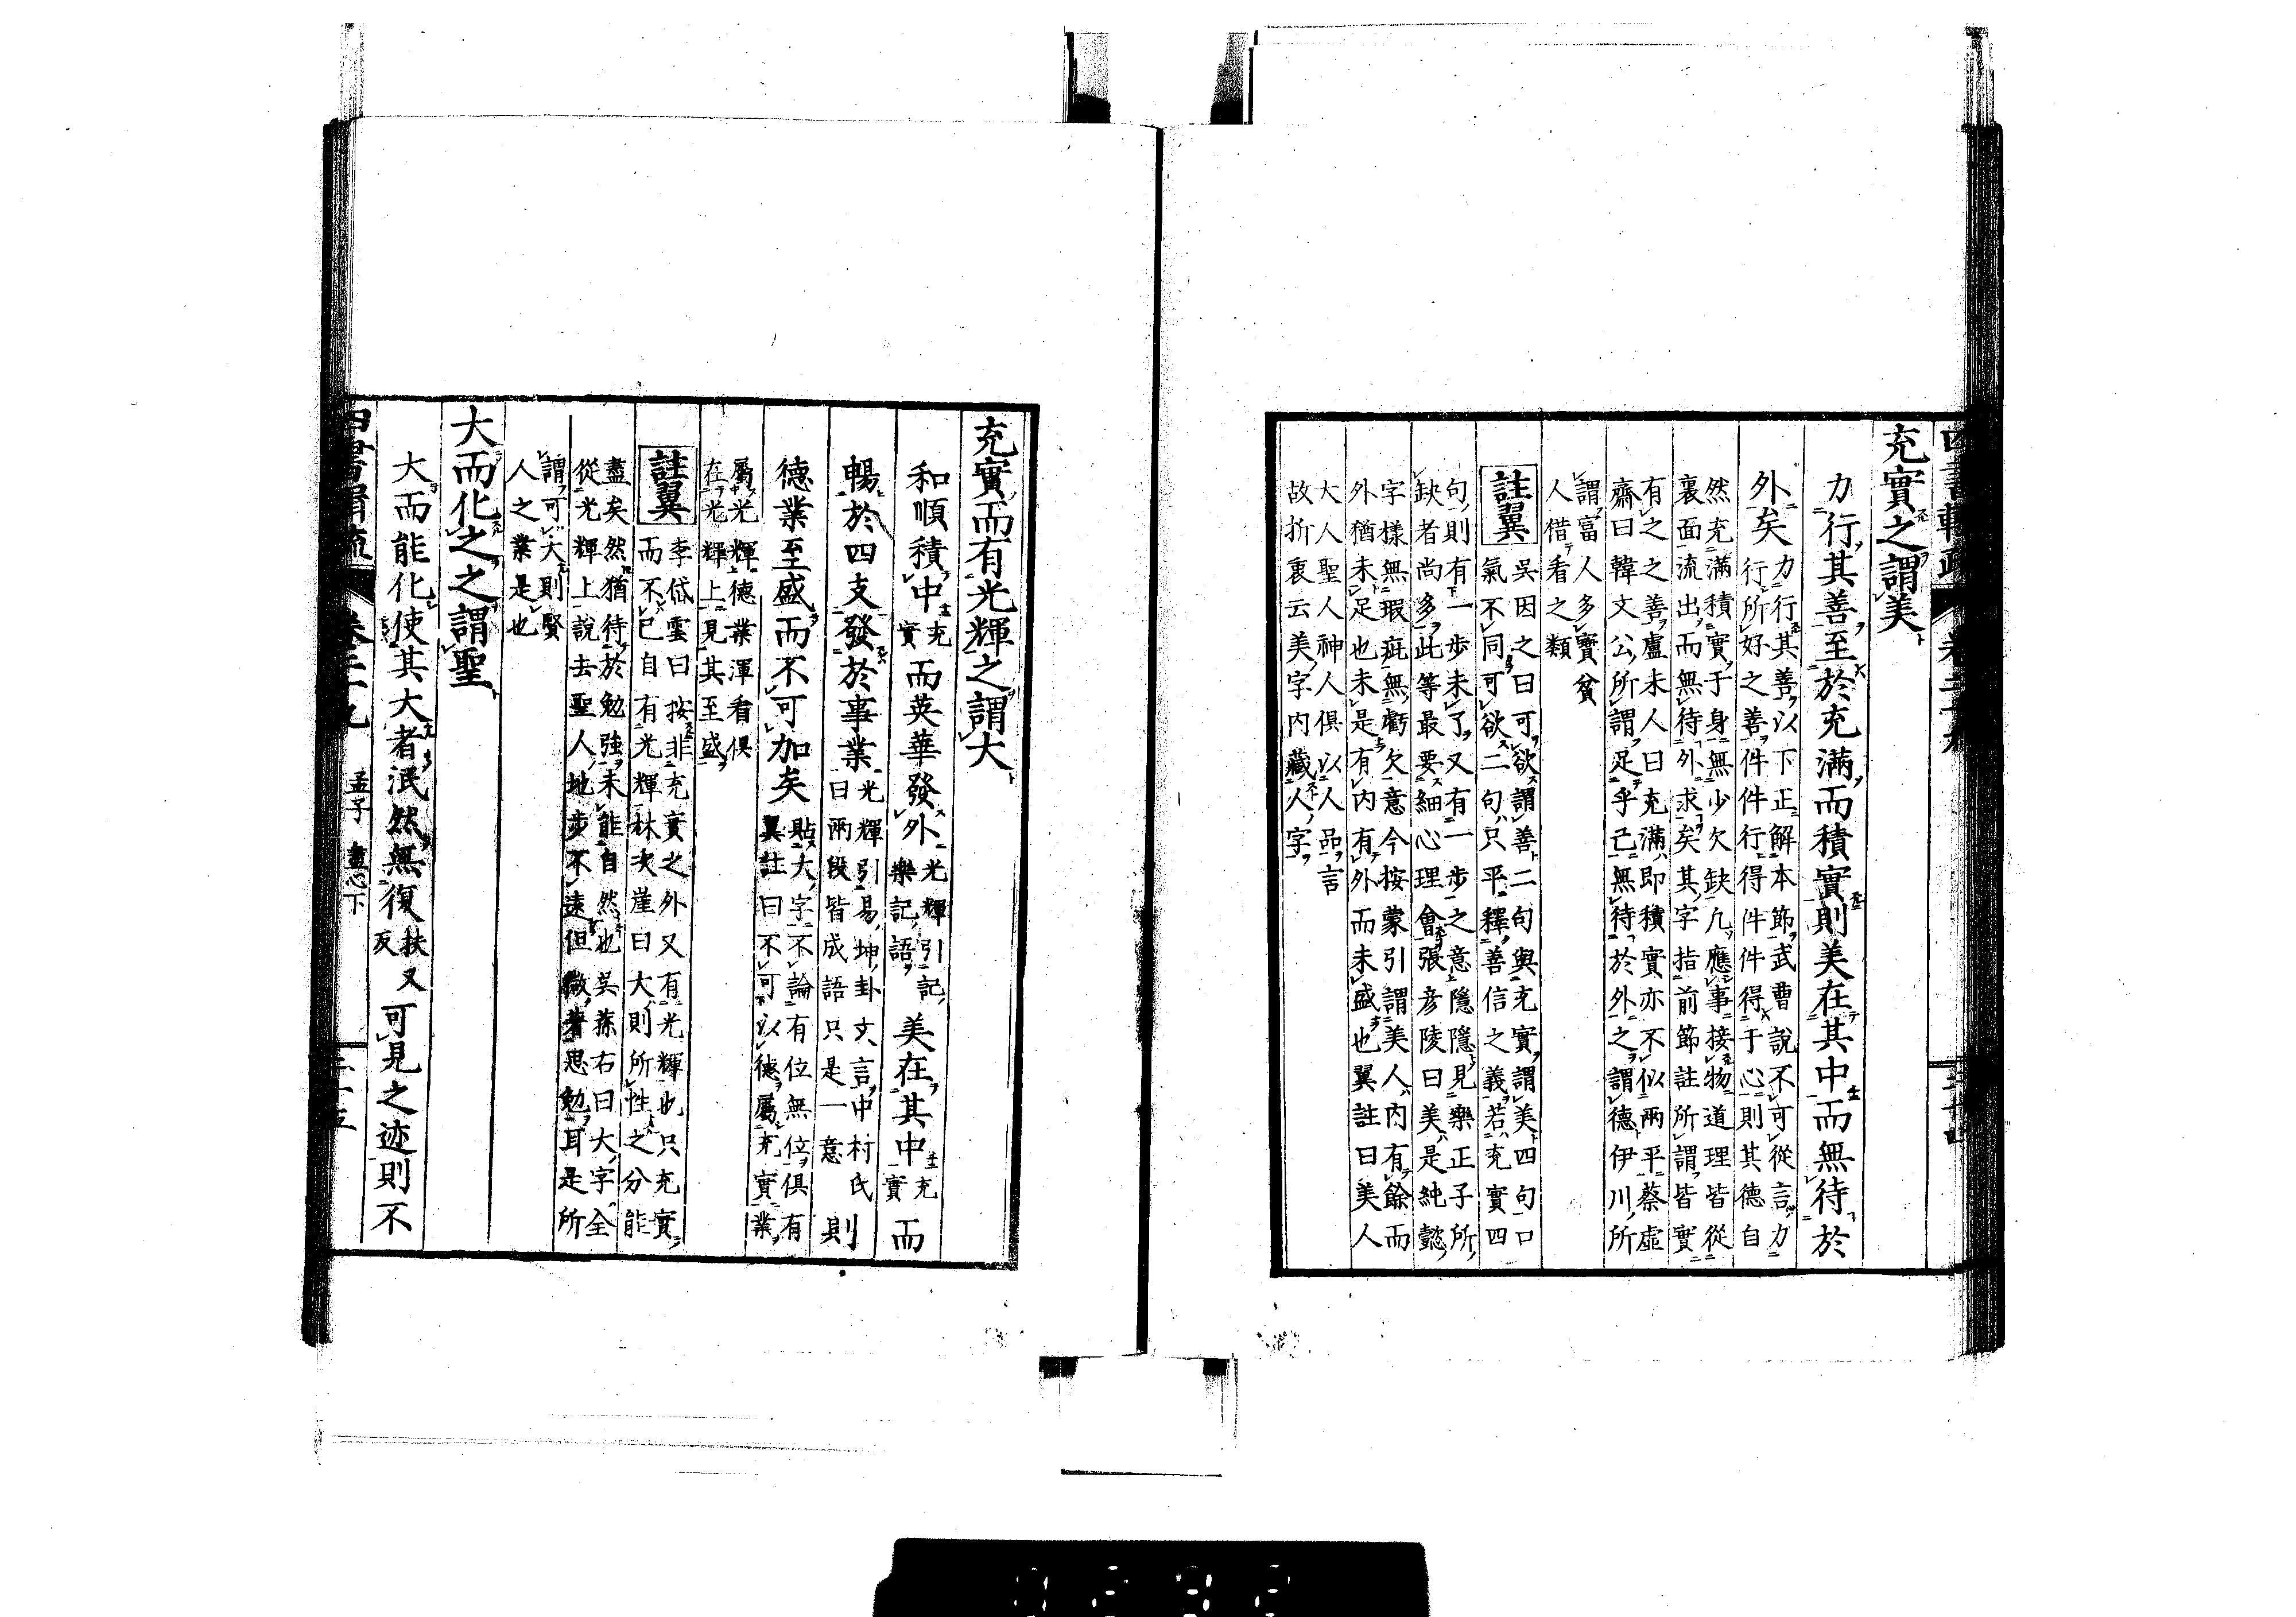 充實之謂美
力行其善至於充滿而積實則美在其中而無待於
外矣
力行其善以下正解本節武曹說不可從言力
行所好之善件件行得件件得于心則其德自
然充滿積實于身無少欠缺凡應事接物道理皆從
裏面流出而無待外求矣其字指前節註所謂皆實
有之之善盧未人曰充滿即積實亦不似兩平蔡虛
齋曰韓文公所謂足乎己無待於外之謂德伊川所
謂富人多寶貧
人借看之類
註翼
吳因之曰可欲謂善二句與充實謂美四句口
氣不同可欲二句只平釋善信之義若充實四
句則有一步未了又有一步之意隱隱見樂正子所
缺者尚多此等最要細心理會張彦陵曰美是純懿
字樣無瑕疵無虧欠意今按蒙引謂美人內有餘而
外猶未足也未是有內有外而未盛也翼註曰美人
大人聖人神人俱以人品言
故折衷云美字內藏人字
充實而有光輝之謂大
和順積中
充
實
而英華發外
光輝引記
樂記語
美在其中
充
實
而
暢於四支發於事業
光輝引易坤卦文言中村氏
曰兩段皆成語只是一意
則
德業至盛而不可加矣
貼大字不論有位無位俱有
翼註曰不可以德屬充實業
屬光輝德業渾看俱
在光輝上見其至盛
註翼
李岱雲曰按非充實之外又有光輝也只充實
而不已自有光輝林次崖曰大則所性之分能
盡矣然猶待於勉強未能自然也吳蓀右曰大字全
從光輝上說去聖人地步不遠但微著思勉耳是所
謂可大則賢
人之業是也
大而化之之謂聖
大而能化使其大者泯然無復
扶又
反
可見之迹則不
孟子 盡心下